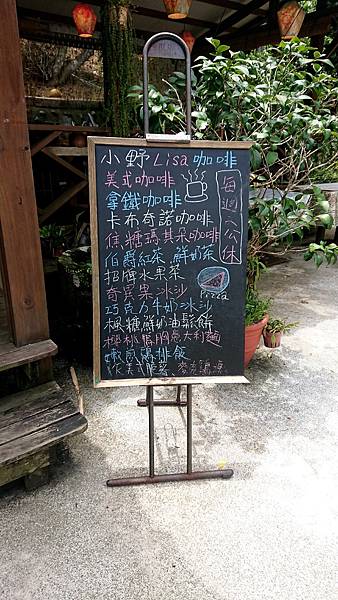 小野Lisa咖啡
美式咖啡
拿鐵咖啡
卡布奇諾咖啡
焦糖瑪其朵咖啡
伯爵紅茶 鮮奶茶
招牌水果茶
奇異果冰沙
巧克力牛奶冰沙
楓糖鮮奶油鬆餅
櫻桃鴨胸意大利麵
嫩煎雞排飯
每週一公休
Pizza